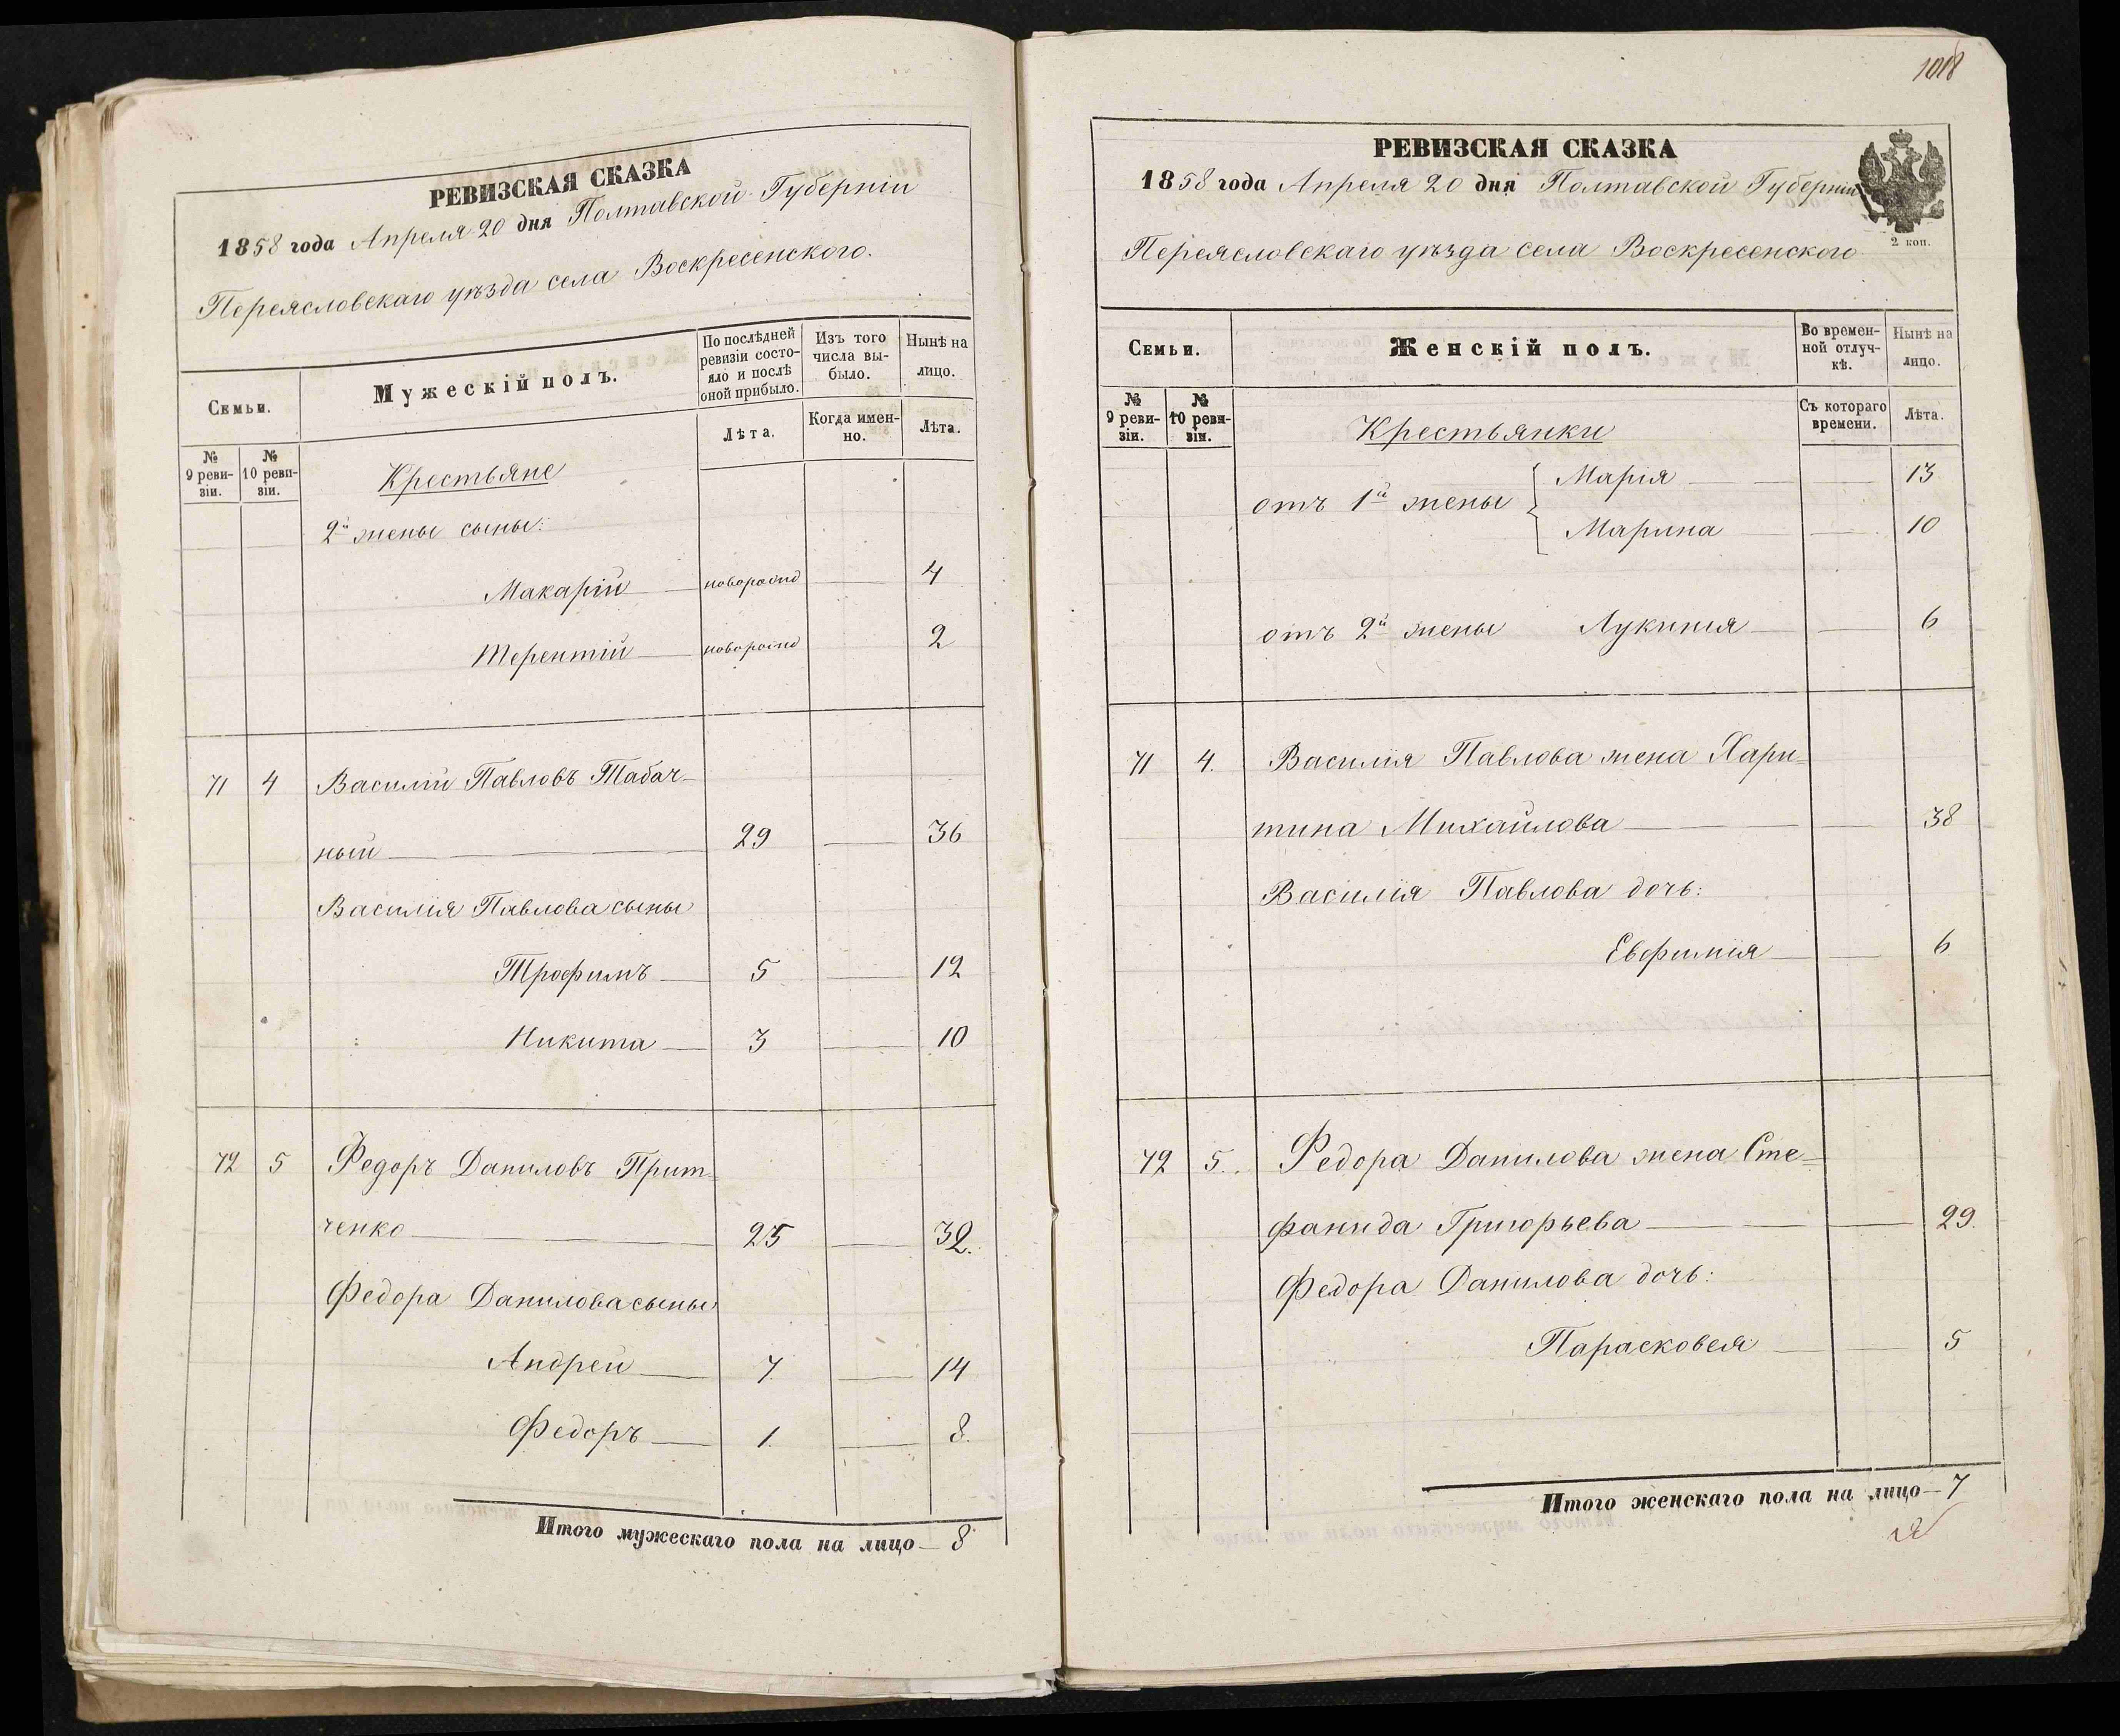 РЕВИЗСКАЯ СКАЗКА
1858 года Апреля 20 дня Полтавской Губерніи
Переясловскаго уѣзда села Воскресенского.
Семьи.
Мужескій полъ.
По послѣдней ревизіи состояло и послѣ оной прибыло.
Изъ того числа выбыло.
Нынѣ на лицо.
№ 9 ревизіи.
№ 10 ревизіи.
Лѣта.
Когда именно.
Лѣта.
Крестьяне
2й жены сыны:
Макарій новорожд 4
Терентій новорожд 2
71 4 Василій Павловъ Табач-
ный 29 36
Василія Павлова сыны
Трофимъ 5 12
Никита 3 10
72 5 Федоръ Даниловъ Прит-
ченко 25 32.
Федора Данилова сыны
Андрей 7 14
Федоръ 1. 8.
Итого мужескаго пола на лицо — 8
1018
РЕВИЗСКАЯ СКАЗКА
1858 года Апреля 20 дня Полтавской Губерніи
2 коп.
Переясловскаго уѣзда села Воскресенского
Семьи.
Женскій полъ.
Во временной отлучкѣ.
Нынѣ на лицо.
№ 9 ревизіи.
№ 10 ревизіи.
Съ котораго времени.
Лѣта.
Крестьянки
отъ 1й жены
Марія 13
Марина 10
отъ 2й жены Лукинія 6
71 4. Василія Павлова жена Хари-
тина Михайлова 38
Василія Павлова дочь:
Евфимія 6
72 5. Федора Данилова жена Сте-
фанида Григорьева 29.
Федора Данилова дочь:
Парасковея 5
Итого женскаго пола на лицо — 7